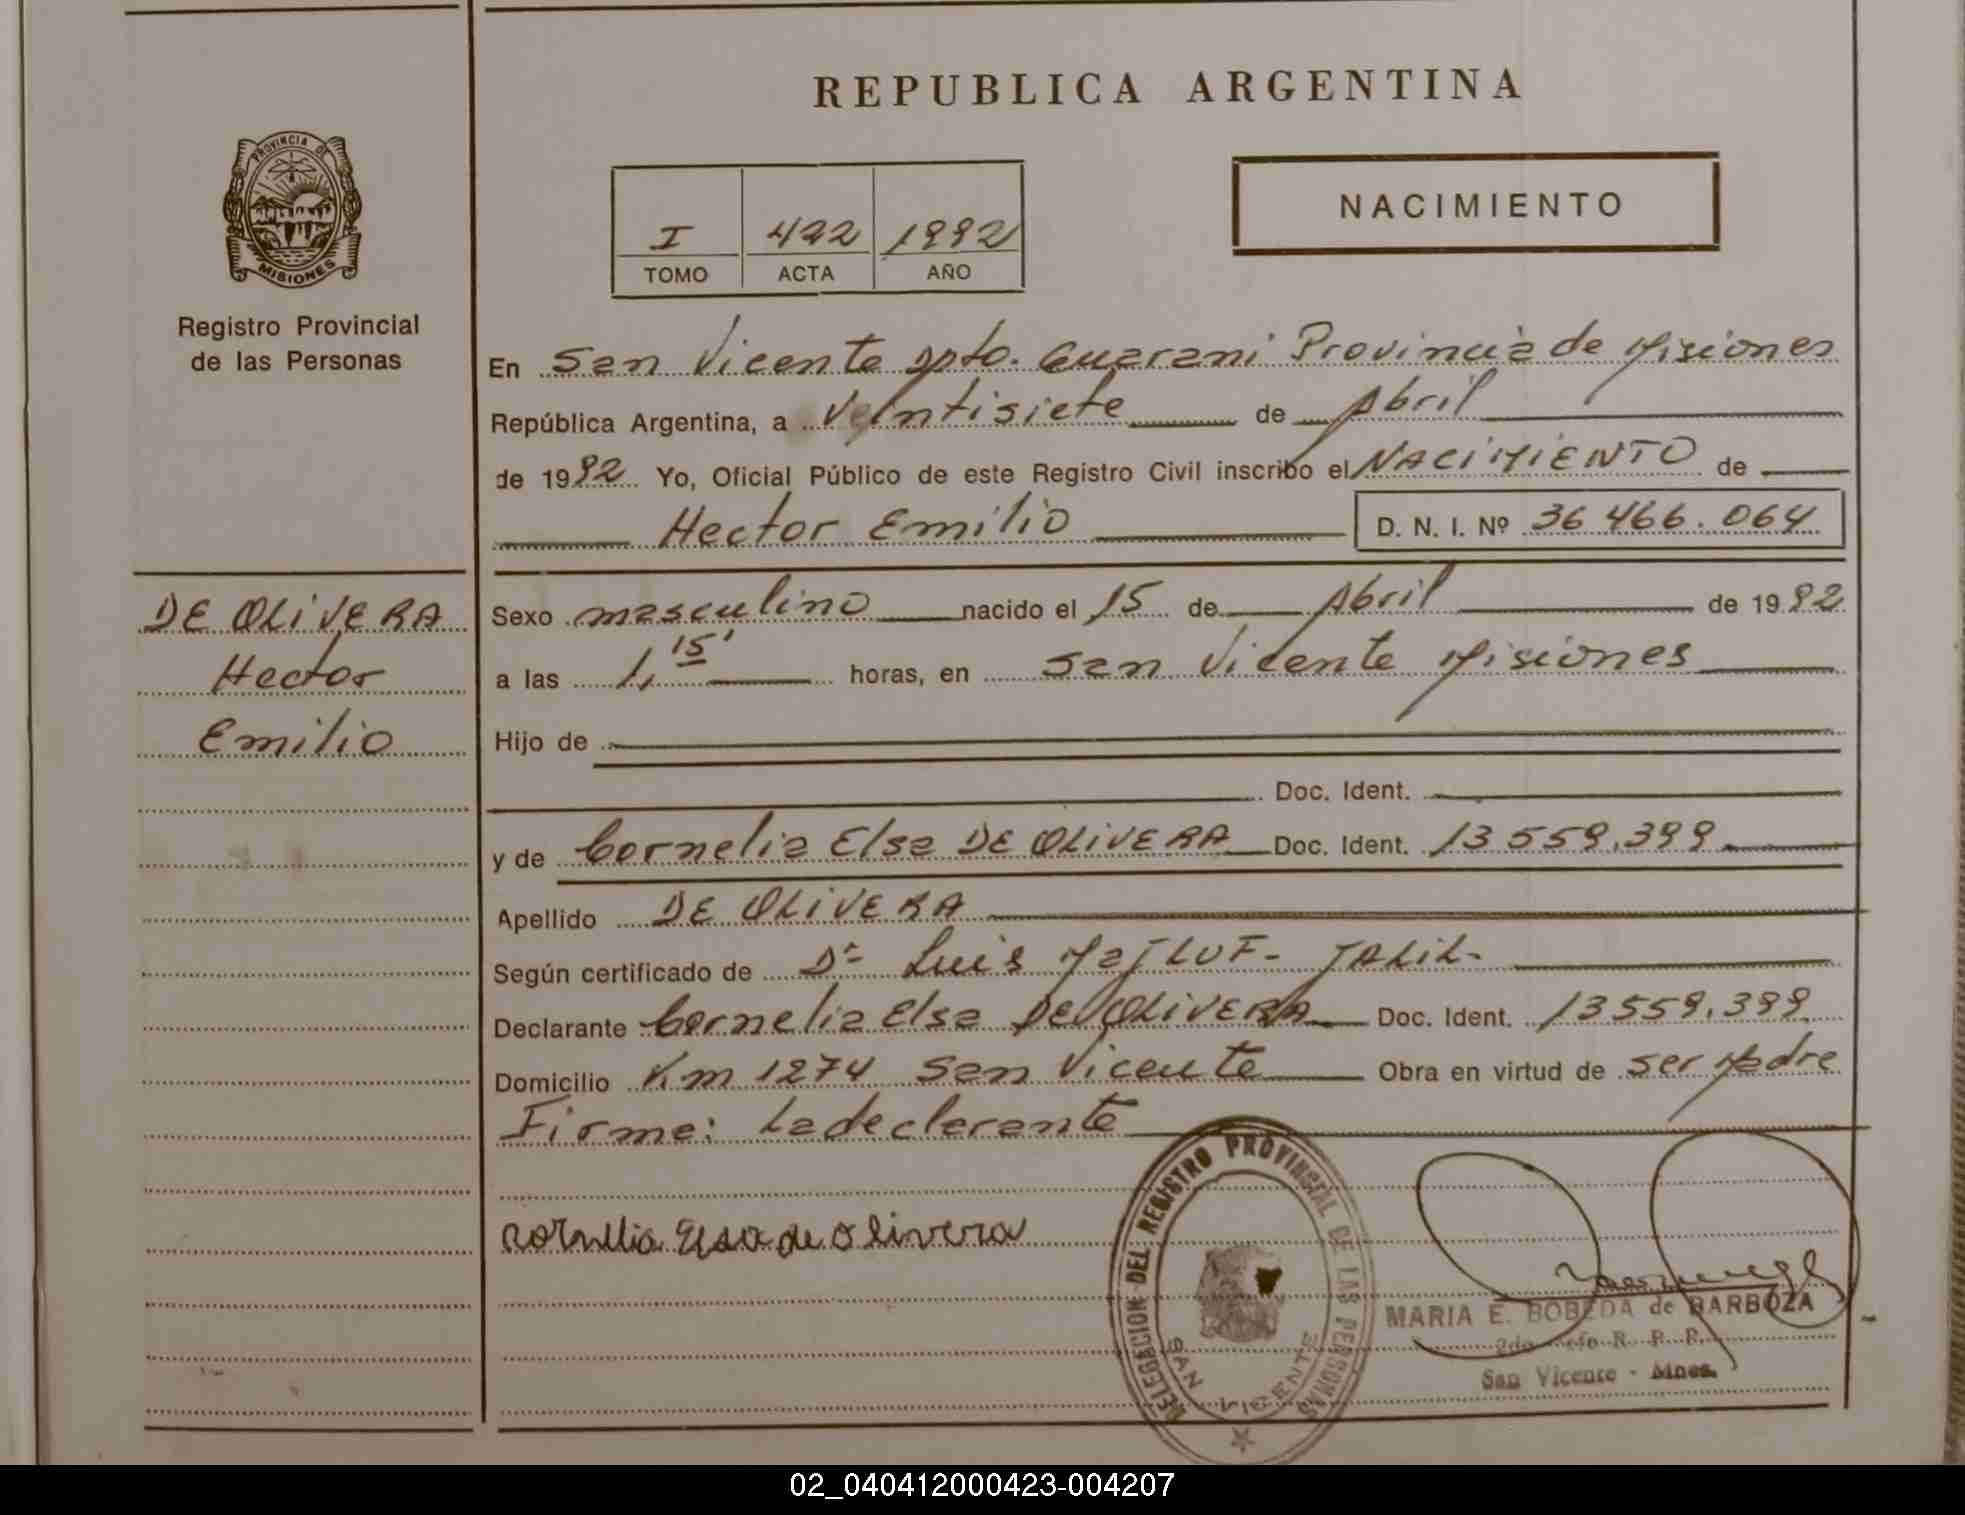 REPUBLICA ARGENTINA
PROVINCIA DE
MISIONES
Registro Provincial
de las Personas
I 422 1992
TOMO ACTA AÑO
NACIMIENTO
En San Vicente Dpto. Guarani Provincia de Misiones
República Argentina, a Veintisiete de Abril
de 1992 Yo, Oficial Público de este Registro Civil inscribo el NACIMIENTO de
Hector Emilio D. N. I. Nº 36 466.064
DE OLIVERA
Hector
Emilio
Sexo masculino nacido el 15 de Abril de 1992
a las 1,15' horas, en San Vicente Misiones
Hijo de
Doc. Ident.
y de Cornelia Elsa DE OLIVERA Doc. Ident. 13 559.399
Apellido DE OLIVERA
Según certificado de Dr Luis MaJLUF- JALIL-
Declarante Cornelia Elsa DE OLIVERA Doc. Ident. 13559.399
Domicilio Km 1274 San Vicente Obra en virtud de ser Madre
Firma: La declarante
Cornelia Elsa de Olivera
DELEGACION DEL REGISTRO PROVINCIAL DE LAS PERSONAS
SAN VICENTE
MARIA E. BOBEDA de BARBOZA
2do Jefe R. P. P.
San Vicente - Mnes.
02_040412000423-004207